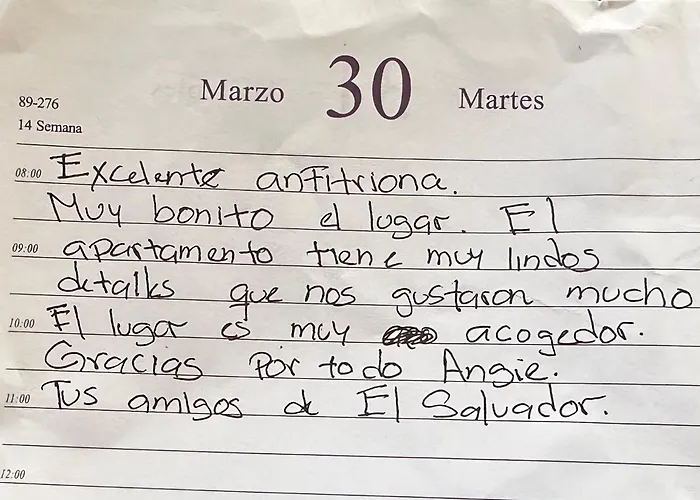 Marzo 30 Martes
89-276
14 Semana
08:00 Excelente anfitriona.
Muy bonito el lugar. El
09:00 apartamento tiene muy lindos
detalles que nos gustaron mucho
10:00 El lugar es muy acogedor.
Gracias por todo Angie.
11:00 Tus amigos de El Salvador.
12:00